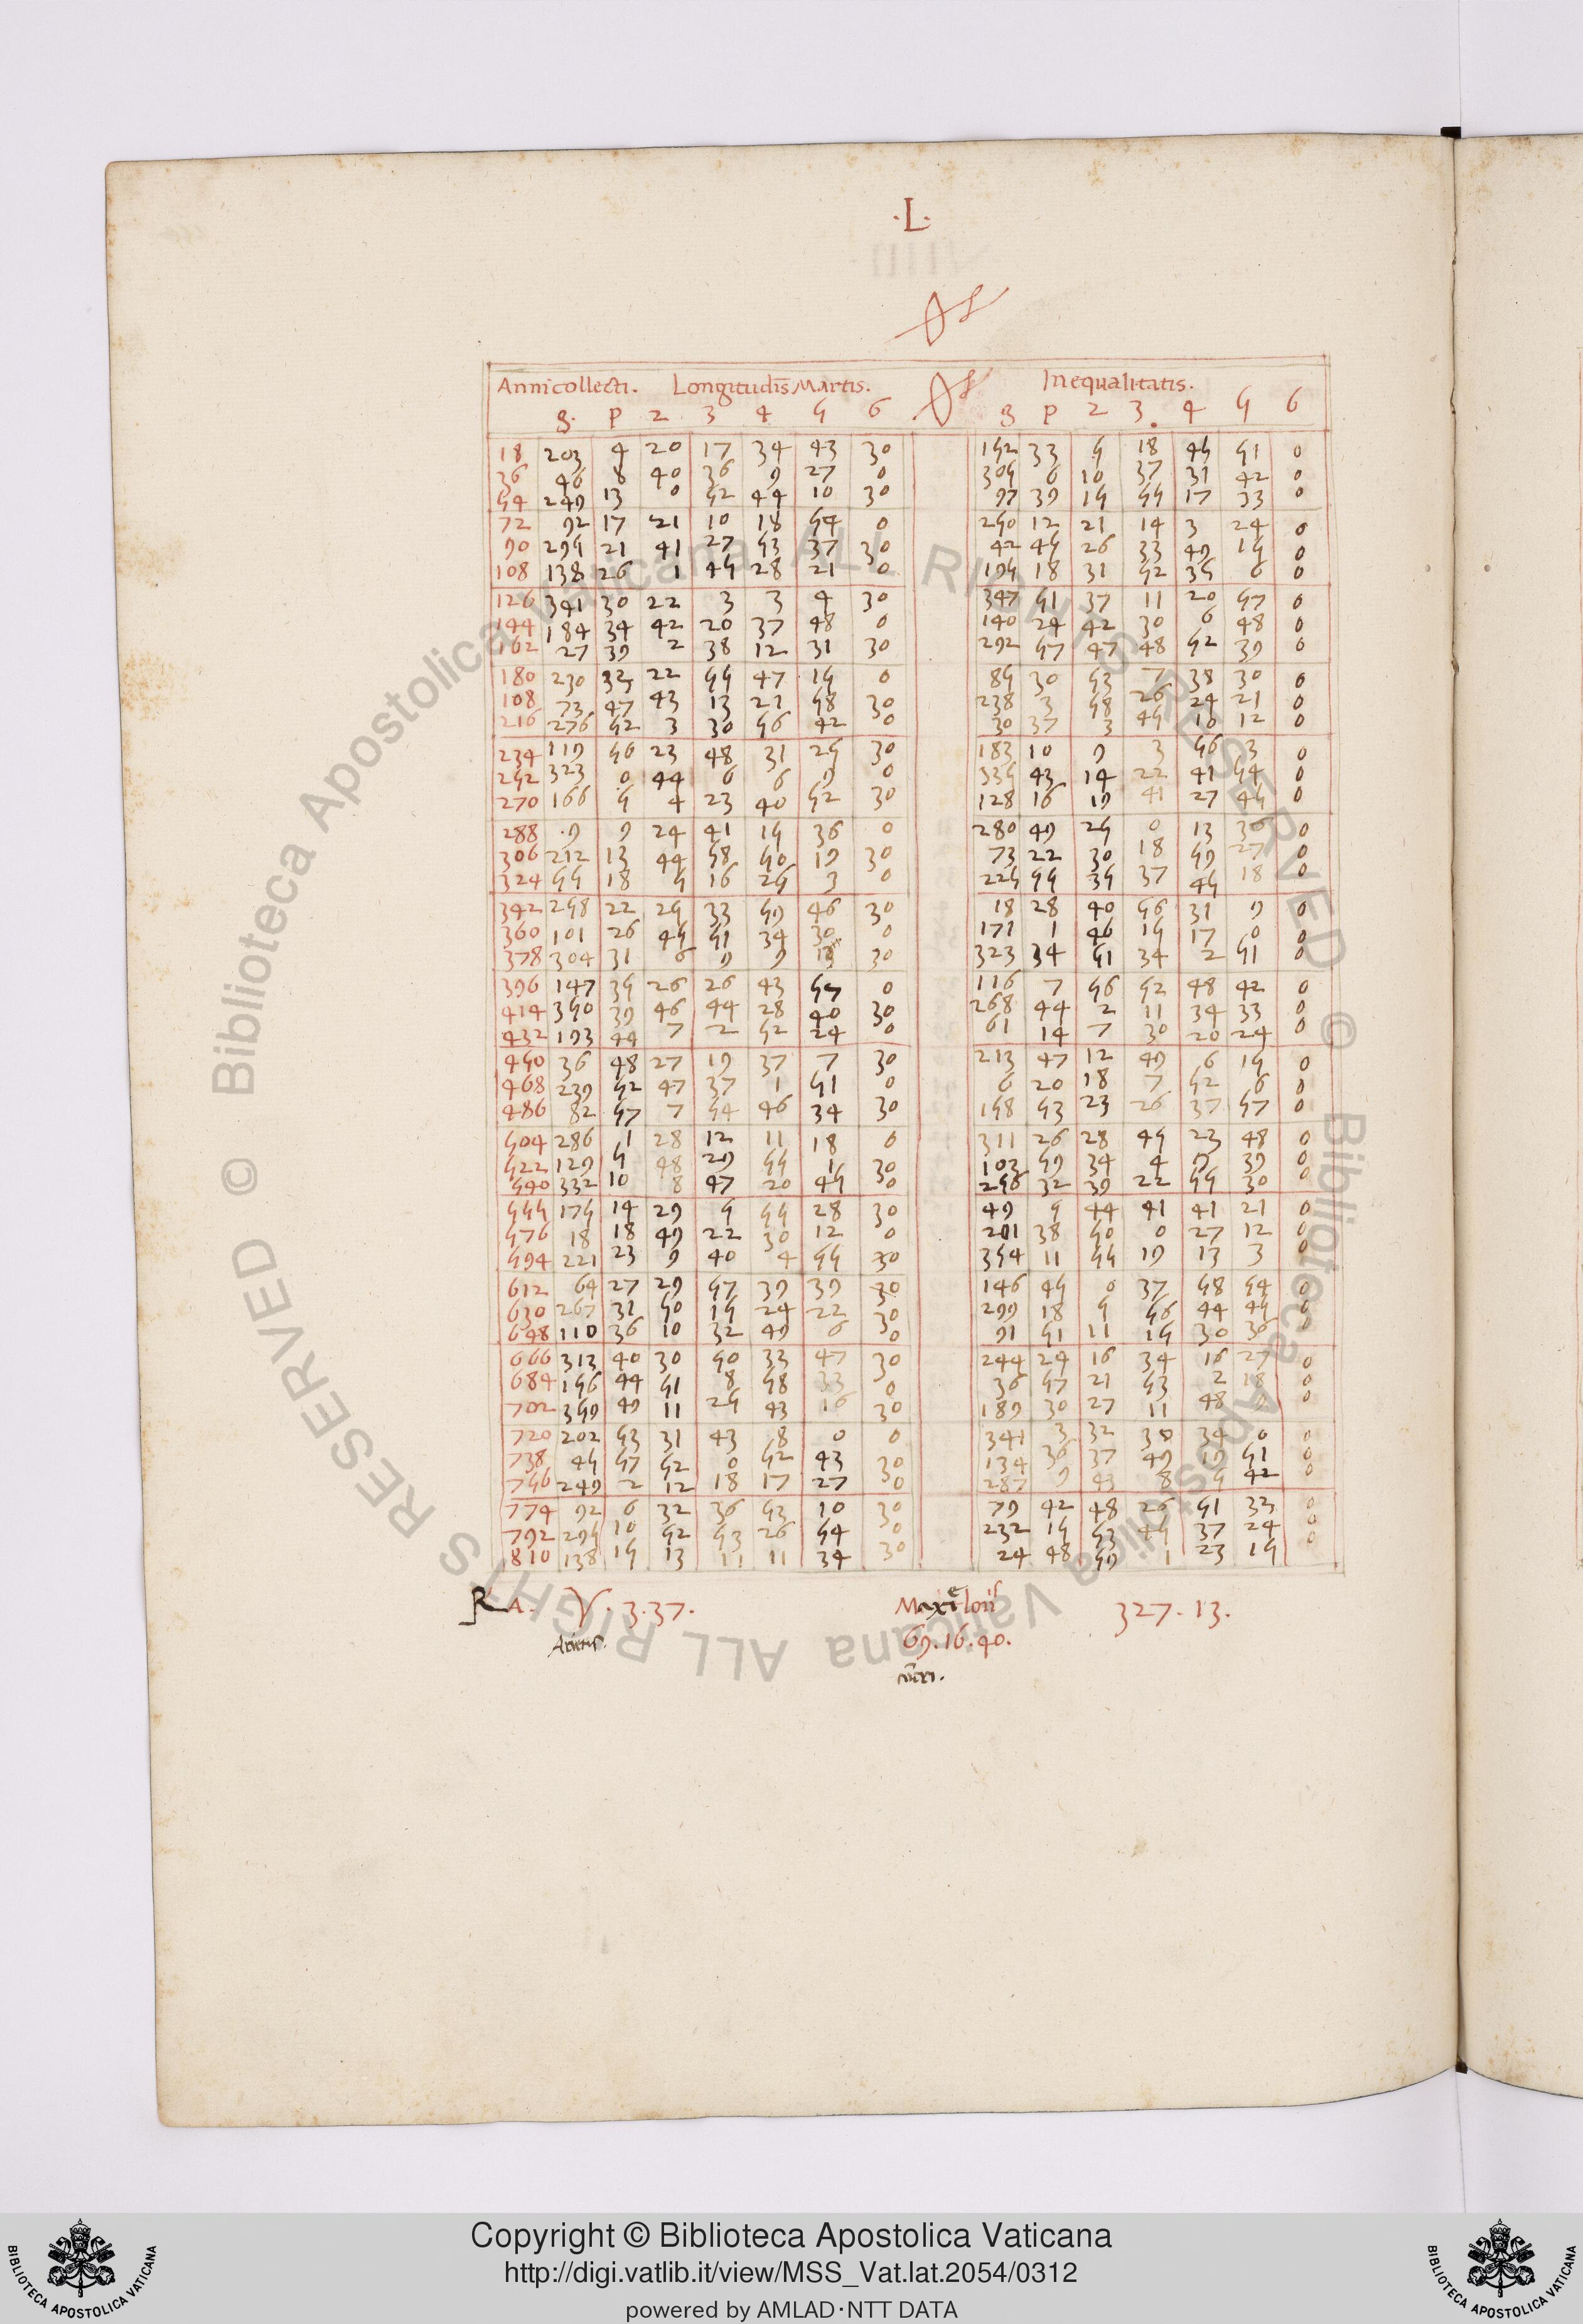 ·L·
Anni collecti. Longitudis Martis. Inequalitatis.
g. p 2 3 4 5 6 g p 2 3. 4 5 6
18 203 4 20 17 34 43 30 152 33 5 18 45 51 0
36 46 8 40 36 9 27 0 305 6 10 37 31 42 0
54 249 13 0 52 44 10 30 97 39 15 55 17 33 0
72 92 17 21 10 18 54 0 250 12 21 14 3 24 0
90 295 21 41 27 53 37 30 42 45 26 33 49 15 0
108 138 26 1 45 28 21 0 195 18 31 52 35 6 0
126 341 30 22 3 3 4 30 347 51 37 11 20 57 0
144 184 34 42 20 37 48 0 140 24 42 30 6 48 0
162 27 39 2 38 12 31 30 292 57 47 48 52 39 0
180 230 22 55 47 15 0 85 30 53 7 38 30 0
198 73 47 43 13 21 58 30 238 3 58 26 24 21 0
216 276 52 3 30 56 42 0 30 37 3 45 10 12 0
234 119 56 23 48 31 25 30 183 10 9 3 56 3 0
252 323 0 44 6 6 9 0 335 43 14 22 41 54 0
270 166 5 4 23 40 52 30 128 16 19 41 27 45 0
288 9 9 24 41 15 36 0 280 49 25 0 13 36 0
306 212 13 44 58 50 19 30 73 22 30 18 59 27 0
324 55 18 5 16 25 3 0 225 55 35 37 45 18 0
342 258 22 25 33 59 46 30 18 28 40 56 31 9 0
360 101 26 45 51 34 30 0 171 1 46 15 17 0 0
378 304 31 6 9 9 13 30 323 34 51 34 2 51 0
396 147 35 26 26 43 57 0 116 7 56 52 48 42 0
414 350 39 46 44 28 40 30 268 44 2 11 34 33 0
432 193 44 7 2 52 24 0 61 14 7 30 20 24 0
450 36 48 27 19 37 7 30 213 47 12 49 6 15 0
468 239 52 47 37 1 51 0 6 20 18 7 52 6 0
486 82 57 7 54 46 34 30 158 53 23 26 37 57 0
504 286 1 28 12 11 18 0 311 26 28 45 23 48 0
522 129 5 48 29 55 1 30 103 59 34 4 9 39 0
540 332 10 8 47 20 45 0 256 32 39 22 55 30 0
555 175 14 29 5 55 28 30 49 5 44 41 41 21 0
576 18 18 49 22 30 12 0 201 38 50 0 27 12 0
594 221 23 9 40 4 55 30 354 11 55 19 13 3 0
612 64 27 29 57 39 39 30 146 45 0 37 58 54 0
630 267 31 50 15 24 22 30 299 18 5 56 44 45 0
648 110 36 10 32 49 6 0 91 51 11 15 30 36 0
666 313 40 30 50 33 47 30 244 24 16 34 16 27 0
684 156 44 51 8 58 33 0 36 57 21 53 2 18 0
702 359 49 11 25 43 16 30 189 30 27 11 48 9 0
720 202 53 31 43 8 0 0 341 3 32 30 34 0 0
738 45 57 52 0 52 43 30 134 36 37 49 19 51 0
756 249 2 12 18 17 27 0 287 9 43 8 5 42 0
774 92 6 32 36 53 10 30 79 42 48 26 51 33 0
792 295 10 52 53 26 54 0 232 15 53 45 37 24 0
810 138 15 13 11 11 34 30 24 48 59 1 23 15
RA. 3.37. Maxie 327.13.
Arietis. 69.16.40.
© Biblioteca Apostolica Vaticana ALL RIGHTS RESERVED © Biblioteca Apostolica Vaticana ALL RIGHTS RESERVED
Copyright © Biblioteca Apostolica Vaticana
http://digi.vatlib.it/view/MSS_Vat.lat.2054/0312
powered by AMLAD·NTT DATA
BIBLIOTECA APOSTOLICA VATICANA
BIBLIOTECA APOSTOLICA VATICANA